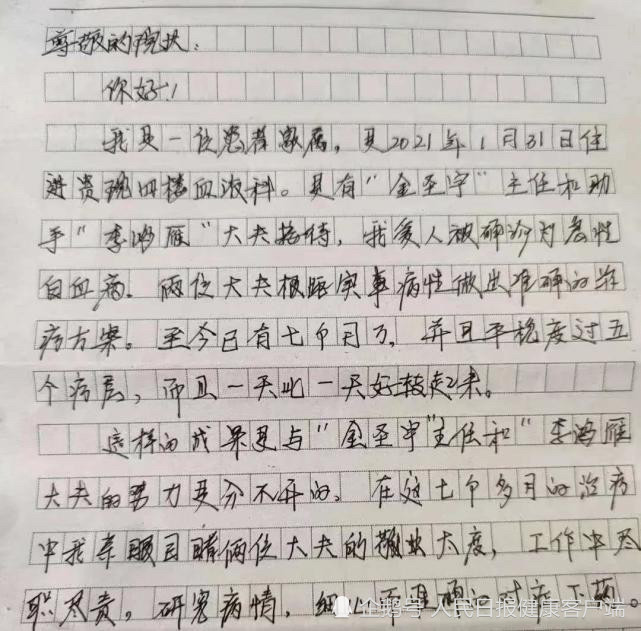 尊敬的院长:
你好!
我是一位患者家属,是2021年1月31日住
进贵院四楼血液科。具有“金圣宇”主任和助
手“李鸿雁”大夫接待,我爱人被确诊为急性
白血病。两位大夫根据实事病性做出准确的治
疗方案。至今已有七个月了,并且平稳度过五
个病层,而且一天比一天好转起来。
这样的成果是与“金圣宇”主任和“李鸿雁
大夫的努力是分不开的。在这七个多月的治病
中我亲眼目睹俩位大夫的敬业太度,工作中尽
职尽责。研究病情,细心而准确的对症下药。
企鹅号 人民日报健康客户端